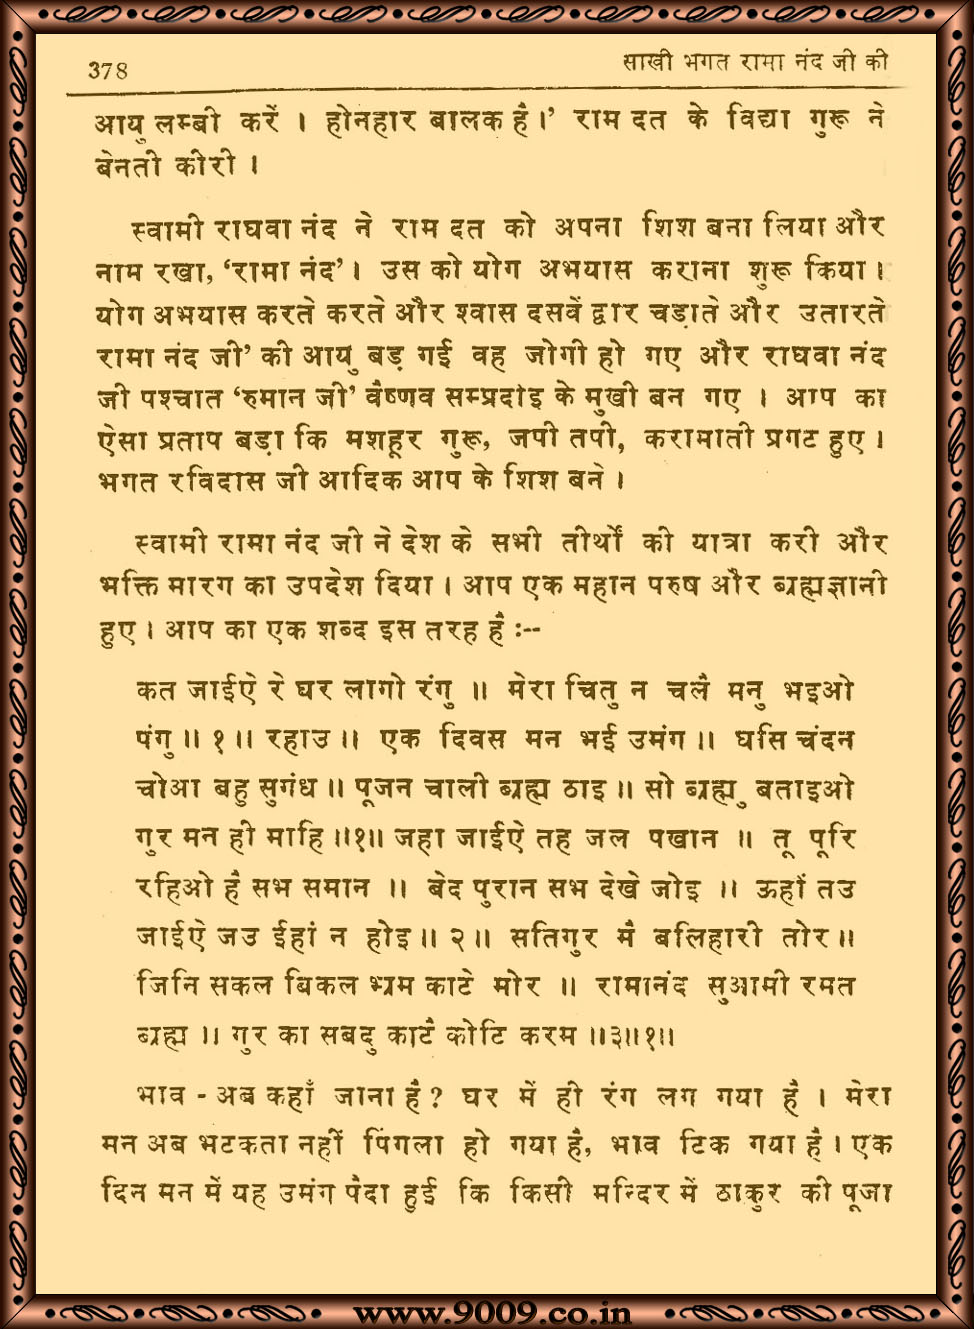 378 साखी भगत रामा नंद जी की
आयु लम्बी करें । होनहार बालक है ।’ राम दत के विद्या गुरू ने
बेनती कीरी ।
स्वामी राघवा नंद ने राम दत को अपना शिश बना लिया और
नाम रखा, ‘रामा नंद’ । उस को योग अभयास कराना शुरू किया ।
योग अभयास करते करते और श्वास दसवें द्वार चड़ाते और उतारते
रामा नंद जी’ की आयु बड़ गई वह जोगी हो गए और राघवा नंद
जी पश्चात ‘रुमान जी’ वैष्णव सम्प्रदाइ के मुखी बन गए । आप का
ऐसा प्रताप बड़ा कि मशहूर गुरू, जपी तपी, करामाती प्रगट हुए ।
भगत रविदास जी आदिक आप के शिश बने ।
स्वामी रामा नंद जी ने देश के सभी तीर्थों की यात्रा करी और
भक्ति मारग का उपदेश दिया । आप एक महान परुष और ब्रह्मज्ञानी
हुए । आप का एक शब्द इस तरह है :--
कत जाईऐ रे घर लागो रंगु ॥ मेरा चितु न चलै मनु भइओ
पंगु ॥ १ ॥ रहाउ ॥ एक दिवस मन भई उमंग ॥ घसि चंदन
चोआ बहु सुगंध ॥ पूजन चाली ब्रह्म ठाइ ॥ सो ब्रह्मु बताइओ
गुर मन ही माहि ॥१॥ जहा जाईऐ तह जल पखान ॥ तू पूरि
रहिओ है सभ समान ॥ बेद पुरान सभ देखे जोइ ॥ ऊहाँ तउ
जाईऐ जउ ईहां न होइ ॥ २ ॥ सतिगुर मै बलिहारी तोर ॥
जिनि सकल बिकल भ्रम काटे मोर ॥ रामानंद सुआमी रमत
ब्रह्म ॥ गुर का सबदु काटै कोटि करम ॥३॥१॥
भाव - अब कहाँ जाना है ? घर में ही रंग लग गया है । मेरा
मन अब भटकता नहीं पिंगला हो गया है, भाव टिक गया है । एक
दिन मन में यह उमंग पैदा हुई कि किसी मन्दिर में ठाकुर की पूजा
www.9009.co.in